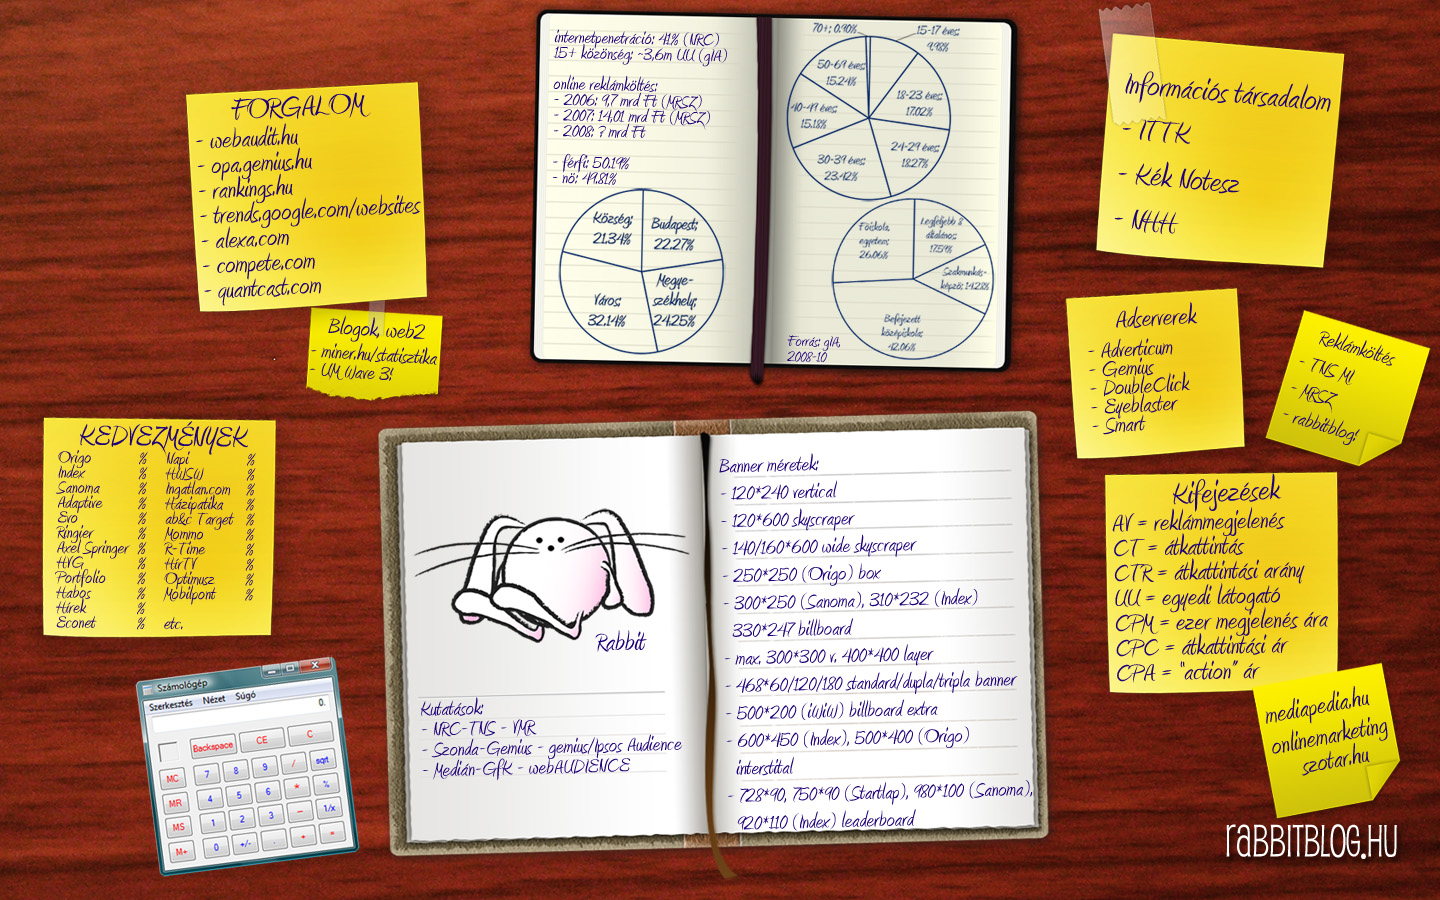 FORGALOM
- webaudit.hu
- opa.gemius.hu
- rankings.hu
- trends.google.com/websites
- alexa.com
- compete.com
- quantcast.com
Blogok, web2
- miner.hu/statisztika
- UM Wave 3!
KEDVEZMÉNYEK
Origo % Napi %
Index % HWSW %
Sanoma % Ingatlan.com %
Adaptive % Házipatika %
Evo % ab&c Target %
Ringier % Mommo %
Axel Springer % R-Time %
HVG % HírTV %
Portfolio % Optimusz %
Habos % Mobilpont %
Hírek %
Econet % etc.
Számológép
Szerkesztés Nézet Súgó
0.
Backspace CE C
MC 7 8 9 / sqrt
MR 4 5 6 * %
MS 1 2 3 - 1/x
M+ 0 +/- . + =
internetpenetráció: 41% (NRC)
15+ közönség: ~3,6m UU (gIA)
online reklámköltés:
- 2006: 9,7 mrd Ft (MRSZ)
- 2007: 14,01 mrd Ft (MRSZ)
- 2008: ? mrd Ft
- férfi: 50.19%
- nö: 49.81%
Község;
21.34%
Budapest;
22.27%
Megye-
székhely;
24.25%
Város;
32.14%
70+; 0.90%
15-17 éves;
9.98%
18-23 éves;
17.02%
24-29 éves;
18.27%
30-39 éves;
23.42%
40-49 éves;
15.18%
50-69 éves;
15.24%
Főiskola,
egyetem;
26.06%
Legfeljebb 8
általános;
17.59%
Szakmunkás-
képző; 14.28%
Befejezett
középiskola;
42.06%
Forrás: gIA,
2008-10
Rabbit
Kutatások:
- NRC-TNS - VMR
- Szonda-Gemius - gemius/Ipsos Audience
- Medián-GfK - webAUDIENCE
Banner méretek:
- 120*240 vertical
- 120*600 skyscraper
- 140/160*600 wide skyscraper
- 250*250 (Origo) box
- 300*250 (Sanoma), 310*232 (Index)
330*247 billboard
- max. 300*300 v. 400*400 layer
- 468*60/120/180 standard/dupla/tripla banner
- 500*200 (iWiW) billboard extra
- 600*450 (Index), 500*400 (Origo)
interstital
- 728*90, 750*90 (Startlap), 980*100 (Sanoma),
920*110 (Index) leaderboard
Információs társadalom
- ITTK
- Kék Notesz
- NHH
Adserverek
- Adverticum
- Gemius
- DoubleClick
- Eyeblaster
- Smart
Reklámköltés
- TNS MI
- MRSZ
- rabbitblog!
Kifejezések
AV = reklámmegjelenés
CT = átkattintás
CTR = átkattintási arány
UU = egyedi látogató
CPM = ezer megjelenés ára
CPC = átkattintási ár
CPA = "action" ár
mediapedia.hu
onlinemarketing
szotar.hu
RABBITBLOG.HU